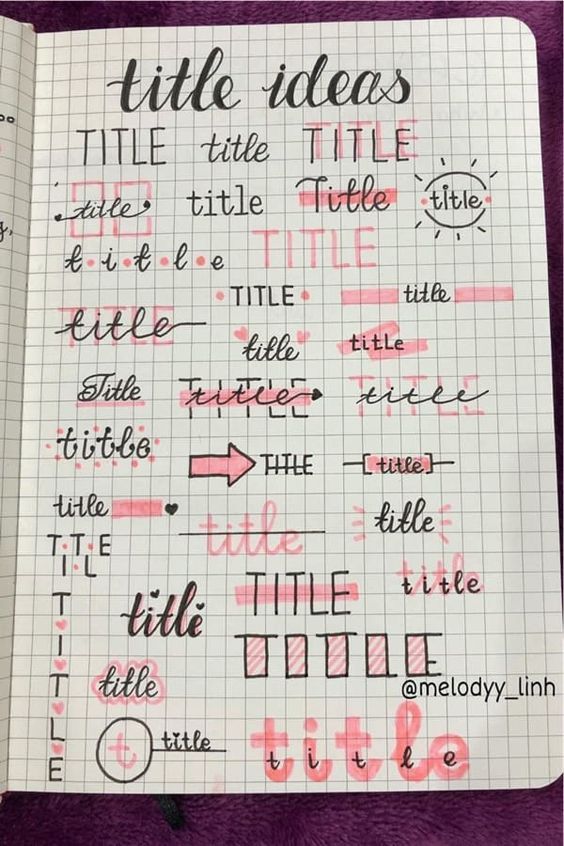 title ideas
TITLE title TITLE
title title Title title
t•i•t•l•e TITLE
•TITLE• title
title
title title
Title title title
title
TITLE [title]
title title
TITLE title
TITLE title
title
TITLE
TITLE
title
@melodyy_linh
t title
title